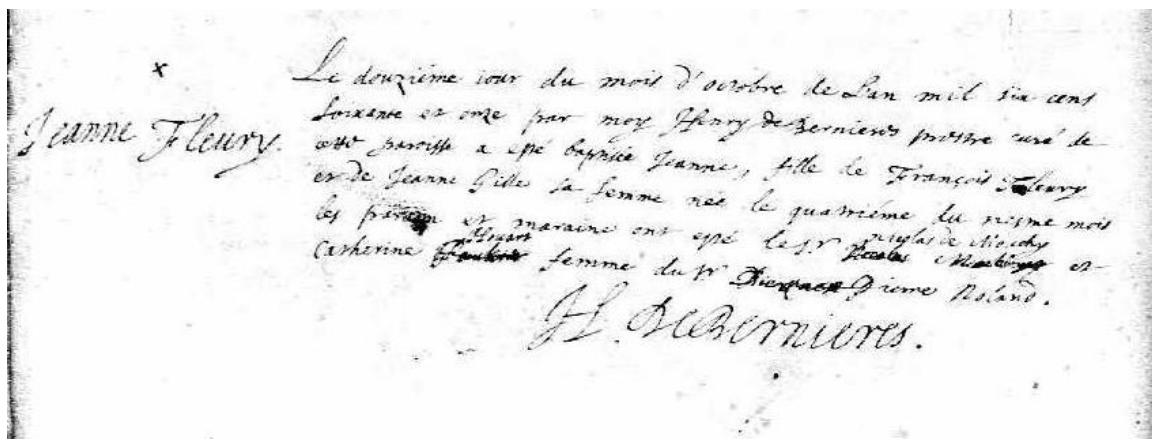 Jeanne Fleury.
Le douziéme iour du mois d'octobre de Lan mil six cens
soixante et onze par moy Henry de Bernieres prestre curé de
cette paroisse a esté baptisée Jeanne, fille de François Fleury
et de Jeanne Gille sa femme née le quatriéme du mesme mois
les parein et maraine ont esté le Sr Nicolas de et
Catherine femme du Sr Pierre Roland.
H. DeBernieres.